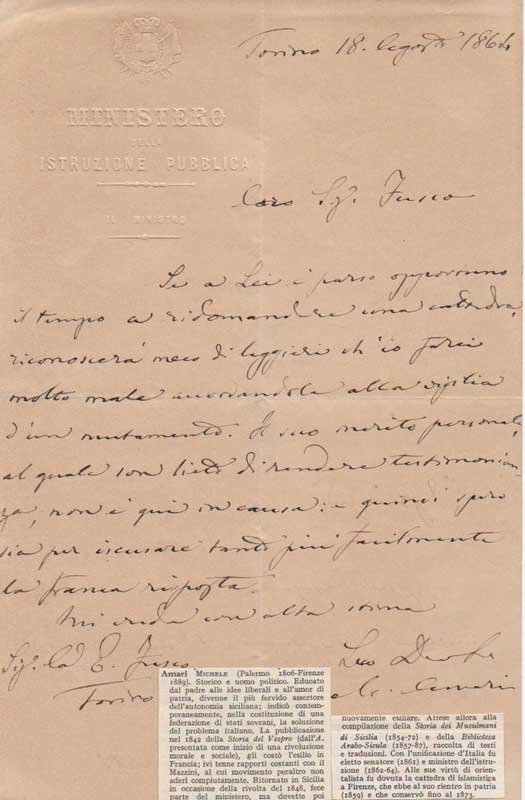 Torino 18. Agosto 1864
MINISTERO
DELLA
ISTRUZIONE PUBBLICA
IL MINISTRO
Caro Sig. Fusco
Se a Lei è parso opportuno
il tempo a ridomandare una cattedra,
riconoscerà meco di leggieri ch'io farei
molto male accordandola alla vigilia
d'un mutamento. Il suo merito personale,
al quale son lieto di rendere testimonian-
za, non è qui in causa: e quindi spero
sia per iscusare tanto più facilmente
la franca risposta.
Mi creda con alta stima
Sig. E. Fusco
Torino
Suo
M. Amari
Amari MICHELE (Palermo 1806-Firenze
1889). Storico e uomo politico. Educato
dal padre alle idee liberali e all'amor di
patria, divenne il più fervido assertore
dell'autonomia siciliana; indicò contem-
poraneamente, nella costituzione di una
federazione di stati sovrani, la soluzione
del problema italiano. La pubblicazione
nel 1842 della Storia del Vespro (dall'A.
presentata come inizio di una rivoluzione
morale e sociale), gli costò l'esilio in
Francia; ivi tenne rapporti costanti con il
Mazzini, al cui movimento peraltro non
aderì compiutamente. Ritornato in Sicilia
in occasione della rivolta del 1848, fece
parte del ministero, ma dovette poi
nuovamente esiliare. Attese allora alla
compilazione della Storia dei Musulmani
di Sicilia (1854-72) e della Biblioteca
Arabo-Sicula (1857-87), raccolta di testi
e traduzioni. Con l'unificazione d'Italia fu
eletto senatore (1861) e ministro dell'istru-
zione (1862-64). Alle sue virtù di orien-
talista fu dovuta la cattedra di islamistica
a Firenze, che ebbe al suo rientro in patria
(1859) e che conservò fino al 1873.